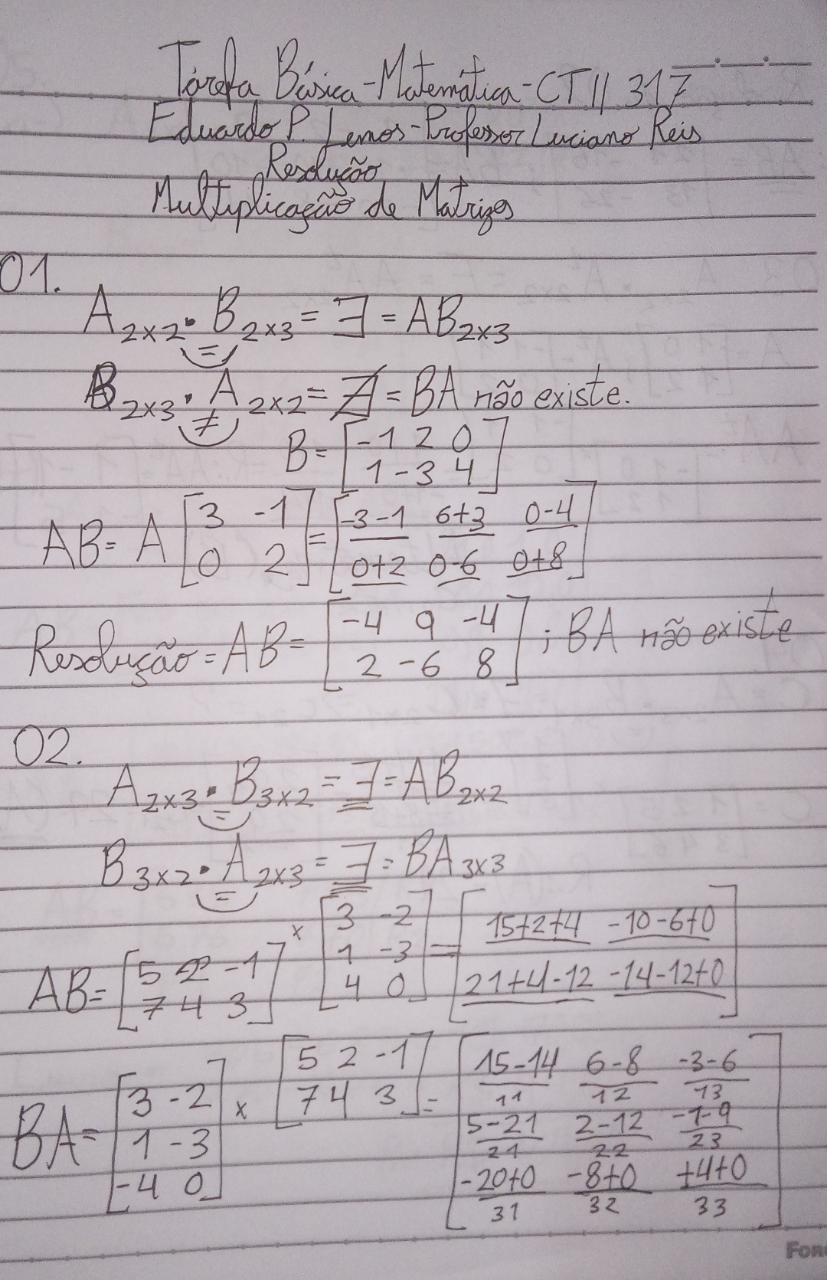 Tarefa Básica-Matemática-CTII 317
Eduardo P. Lemos-Professor Luciano Reis
Resolução
Multiplicação de Matrizes
01.
A2x2 · B2x3 = ∃ = AB2x3
=
B2x3 · A2x2 = ∄ = BA não existe.
≠
B= [-1 2 0
1 -3 4]
AB= A [3 -1
0 2] = [-3-1 6+3 0-4
0+2 0-6 0+8]
Resolução = AB= [-4 9 -4
2 -6 8] ; BA não existe
02.
A2x3 · B3x2 = ∃ = AB2x2
=
B3x2 · A2x3 = ∃ = BA3x3
=
AB= [5 2 -1
7 4 3] x [3 -2
1 -3
4 0] = [15+2+4 -10-6+0
21+4-12 -14-12+0]
BA= [3 -2
1 -3
-4 0] x [5 2 -1
7 4 3] = [15-14 6-8 -3-6
11 12 13
5-21 2-12 -1-9
21 22 23
-20+0 -8+0 +4+0
31 32 33]